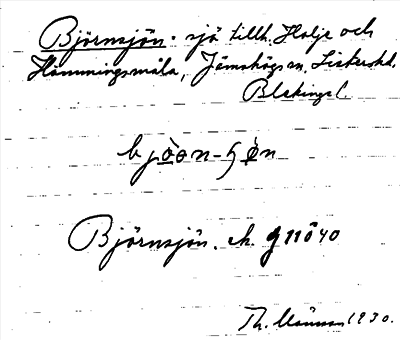 Björnsjön. sjö tillh. Holje och
Hemmingsmåla, Jämshögs sn. Listers hd.
Blekinge l.
bjòon-ʃön
Björnsjön. ek. g11ö40
Th. 1930.